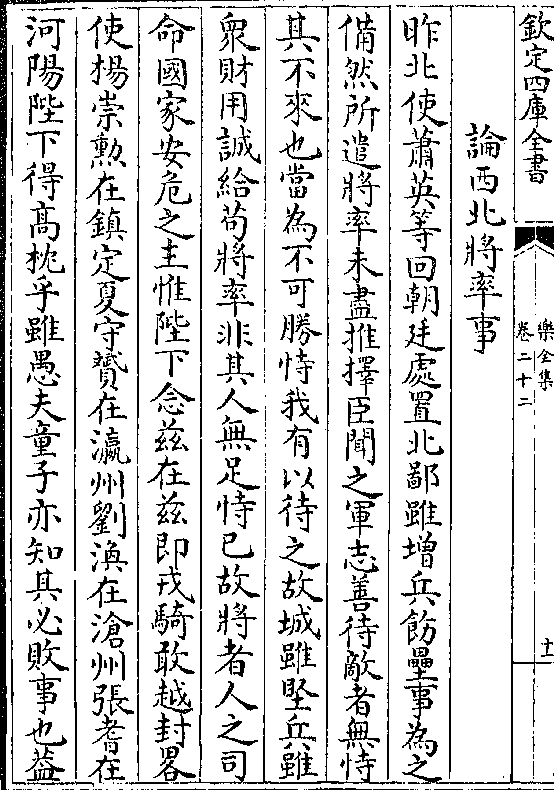 欽定四庫全書
樂全集
卷二十二
十一
論西北將率事
昨北使蕭英等回朝廷處置北鄙雖增兵飭壘事為之
備然所遣將率未盡推擇臣聞之軍志善待敵者無恃
其不來也當為不可勝恃我有以待之故城雖堅兵雖
衆財用誠給苟將率非其人無足恃已故將者人之司
命國家安危之主惟陛下念兹在兹即戎騎敢越封畧
使楊崇勲在鎮定夏守贇在瀛州劉渙在滄州張耆在
河陽陛下得髙枕乎雖愚夫童子亦知其必敗事也葢